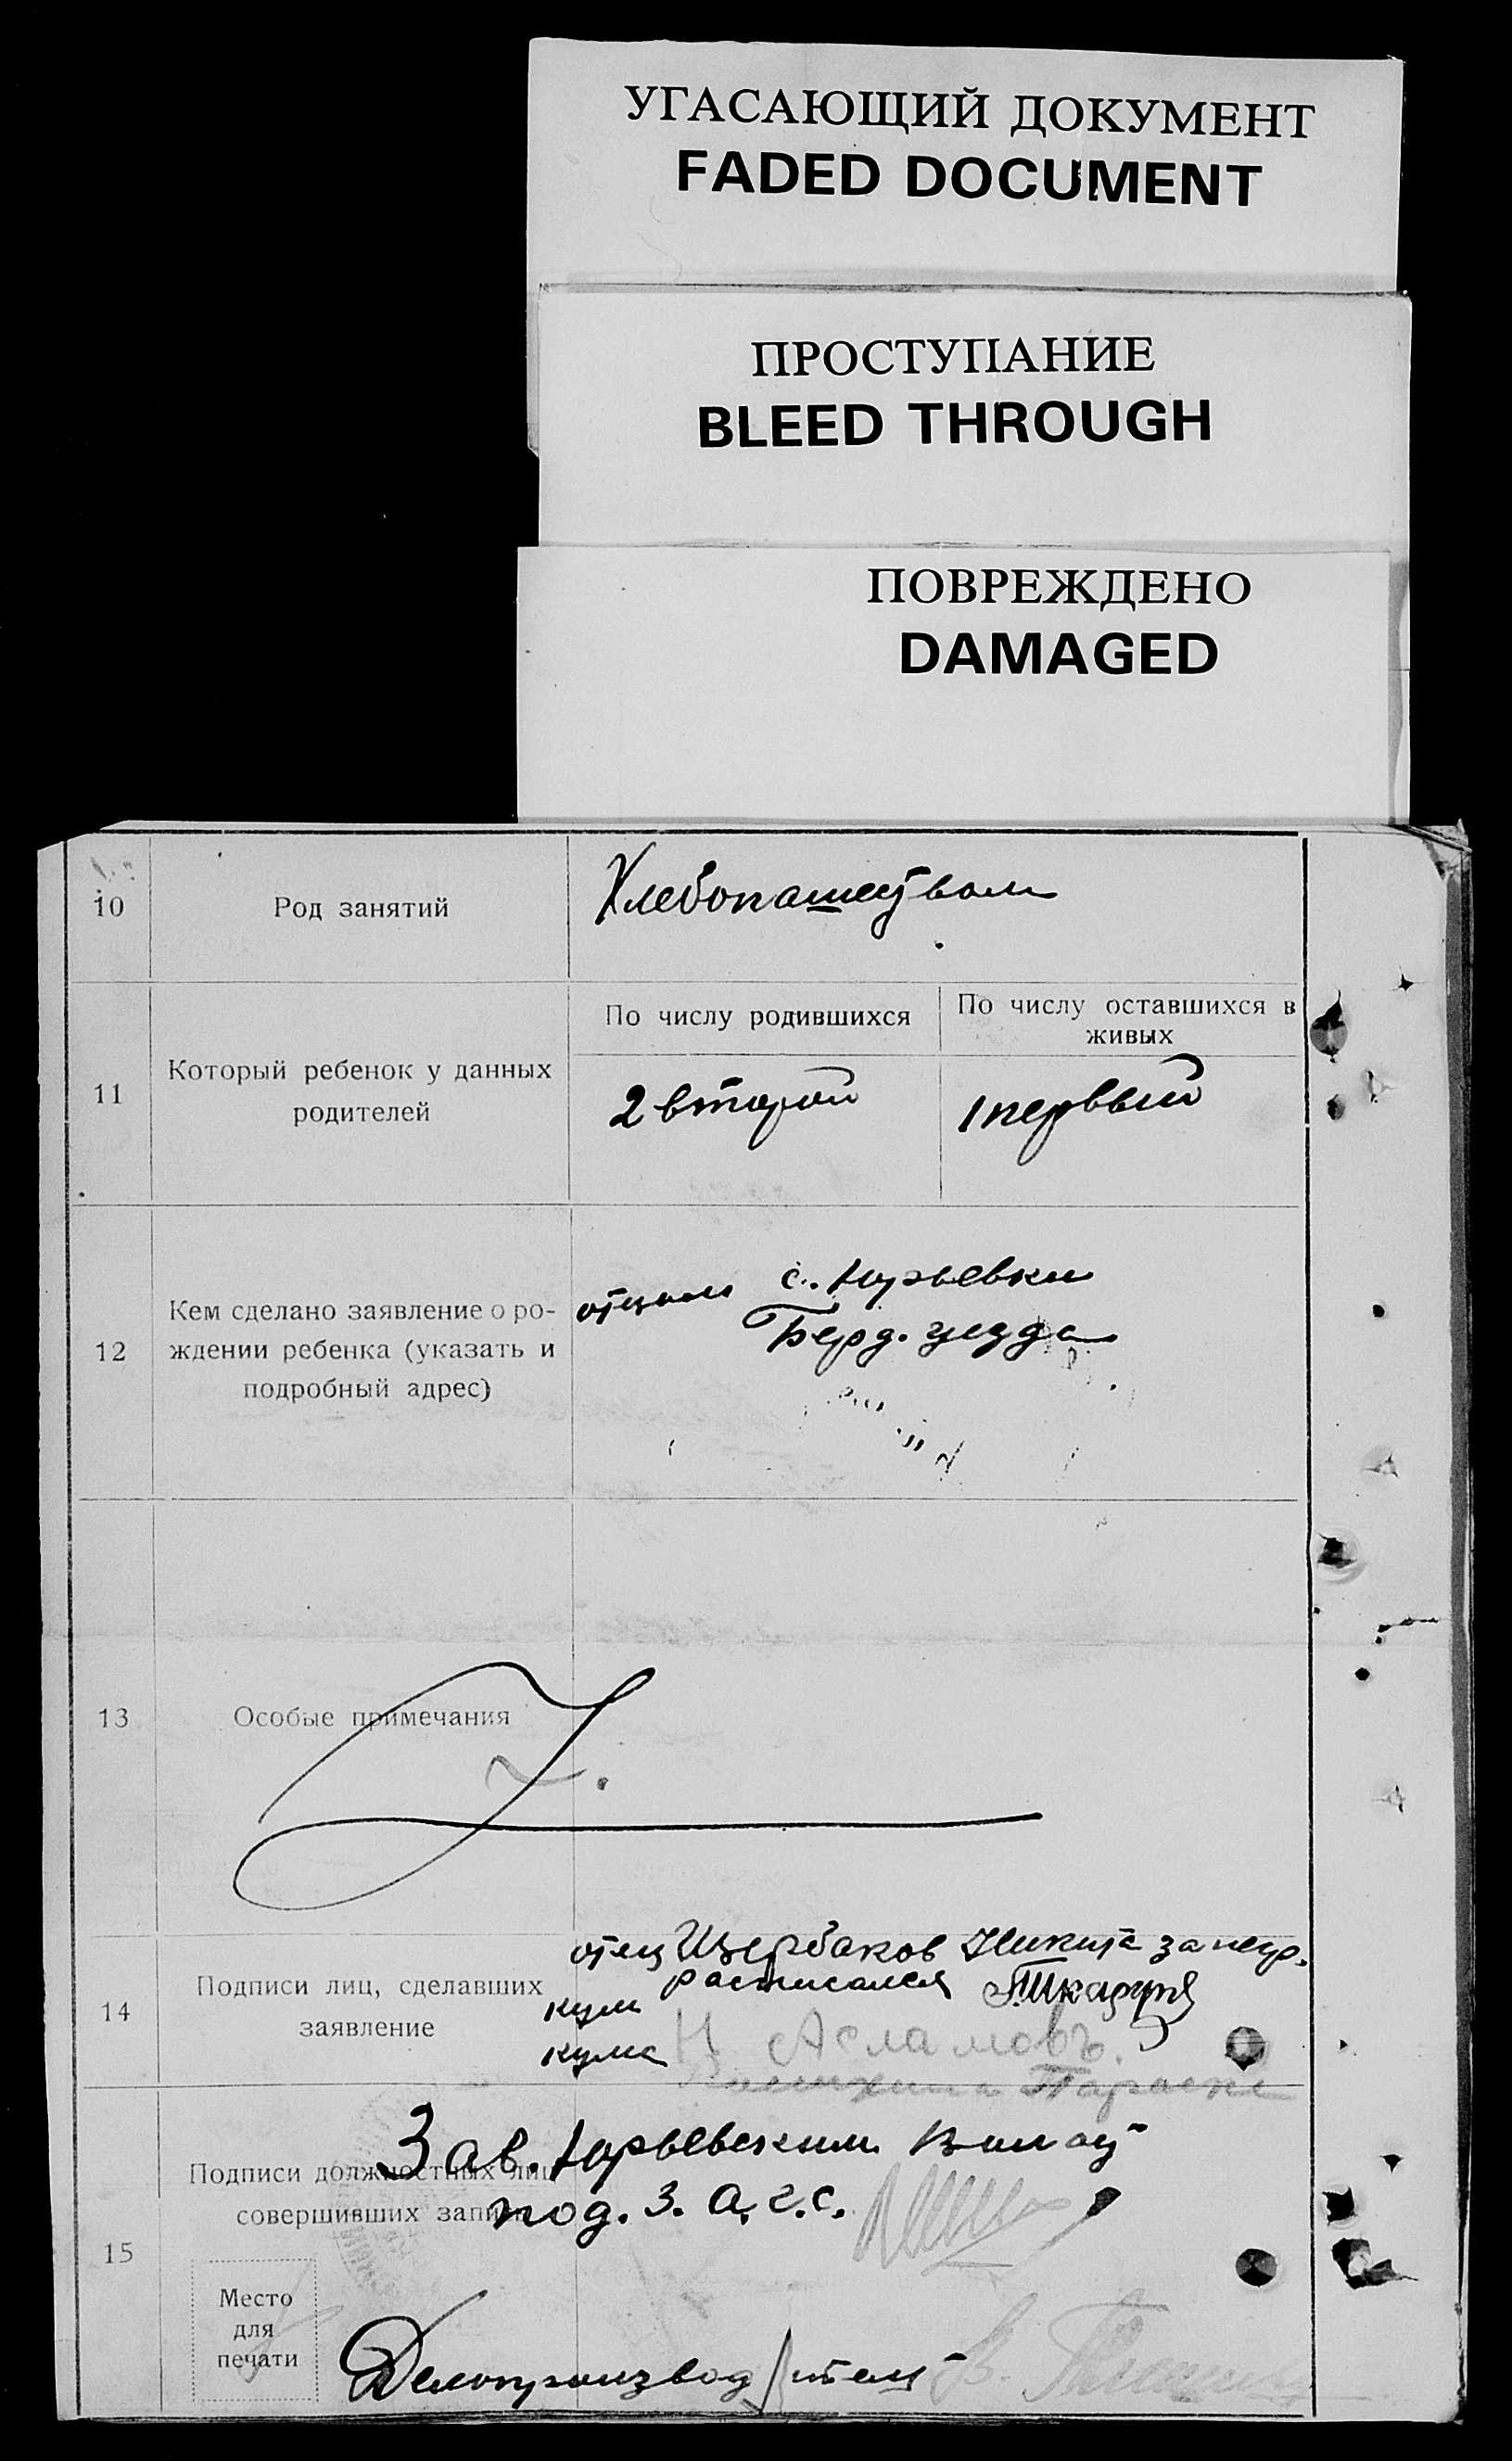 УГАСАЮЩИЙ ДОКУМЕНТ
FADED DOCUMENT
ПРОСТУПАНИЕ
BLEED THROUGH
ПОВРЕЖДЕНО
DAMAGED
10
Род занятий
Хлебопашеством
11
Который ребенок у данных
родителей
По числу родившихся
По числу оставшихся в
живых
2 второй
1 первый
12
Кем сделано заявление о ро-
ждении ребенка (указать и
подробный адрес)
отцом с. Юрьевки
Берд. уезда
13
Особые примечания
14
Подписи лиц, сделавших
заявление
отец Щербаков Никита за негр.
расписался
кум
Н Асламовъ.
кума
Параска
15
Подписи должностных лиц
совершивших
Зав. Юрьевским
под. З. А. Г. С.
Место
для
печати
Делопроизводитель